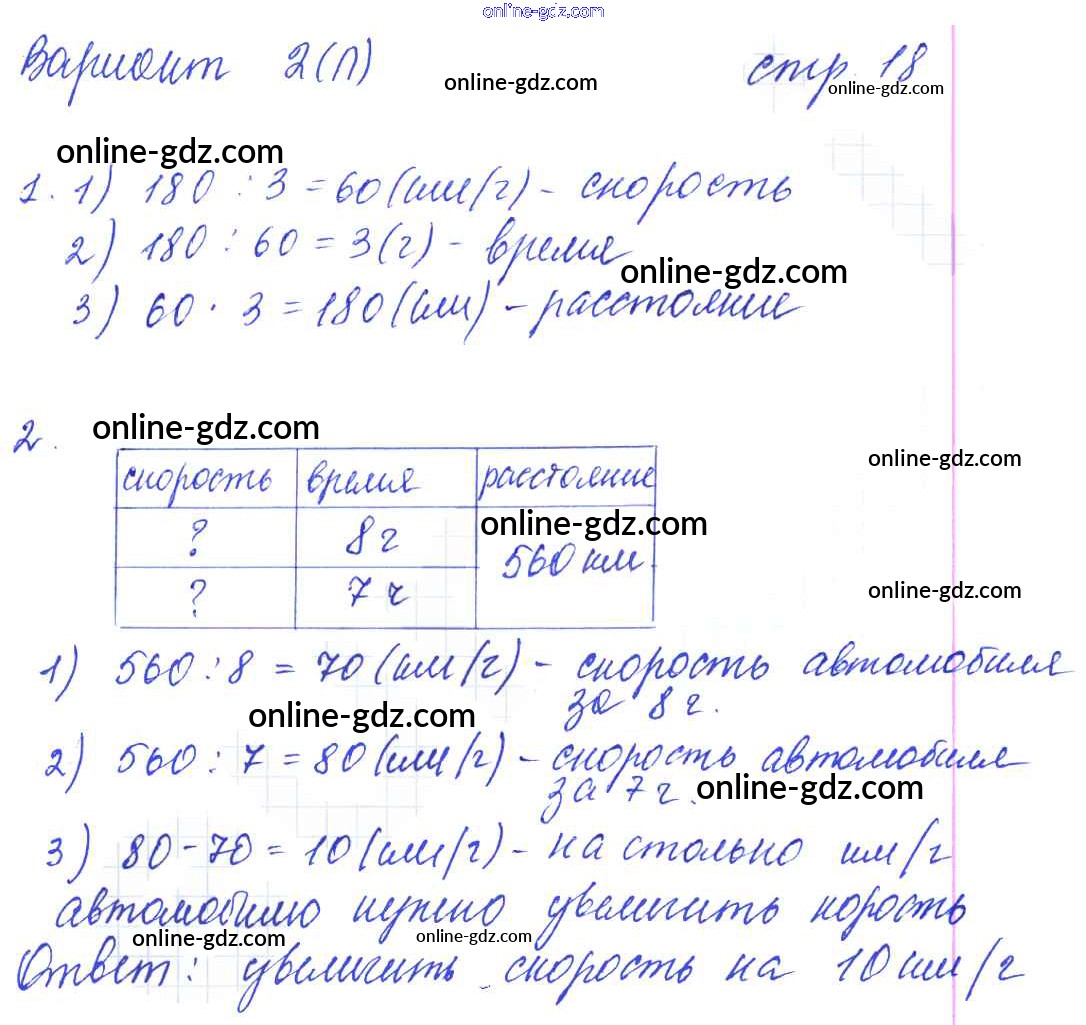 online-gdz.com
Вариант 2(П) online-gdz.com стр. 18
online-gdz.com
online-gdz.com
1. 1) 180 : 3 = 60 (км/ч) - скорость
2) 180 : 60 = 3 (ч) - время
online-gdz.com
3) 60 · 3 = 180 (км) - расстояние
2. online-gdz.com
скорость время расстояние
online-gdz.com
? 8 ч 560 км
online-gdz.com
? 7 ч
online-gdz.com
1) 560 : 8 = 70 (км/ч) - скорость автомобиля
за 8 ч.
online-gdz.com
2) 560 : 7 = 80 (км/ч) - скорость автомобиля
за 7 ч.
online-gdz.com
3) 80 - 70 = 10 (км/ч) - на столько км/ч
автомобилю нужно увеличить корость
online-gdz.com online-gdz.com
Ответ: увеличить скорость на 10 км/ч